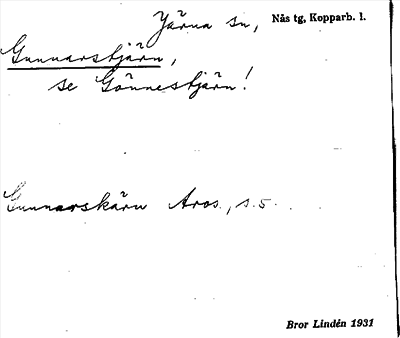 Järna sn, Nås tg, Kopparb. l.
Gunnarstjärn,
se Gönnestjärn!
Gunnarskärn Aros., s. 5.
Bror Lindén 1931